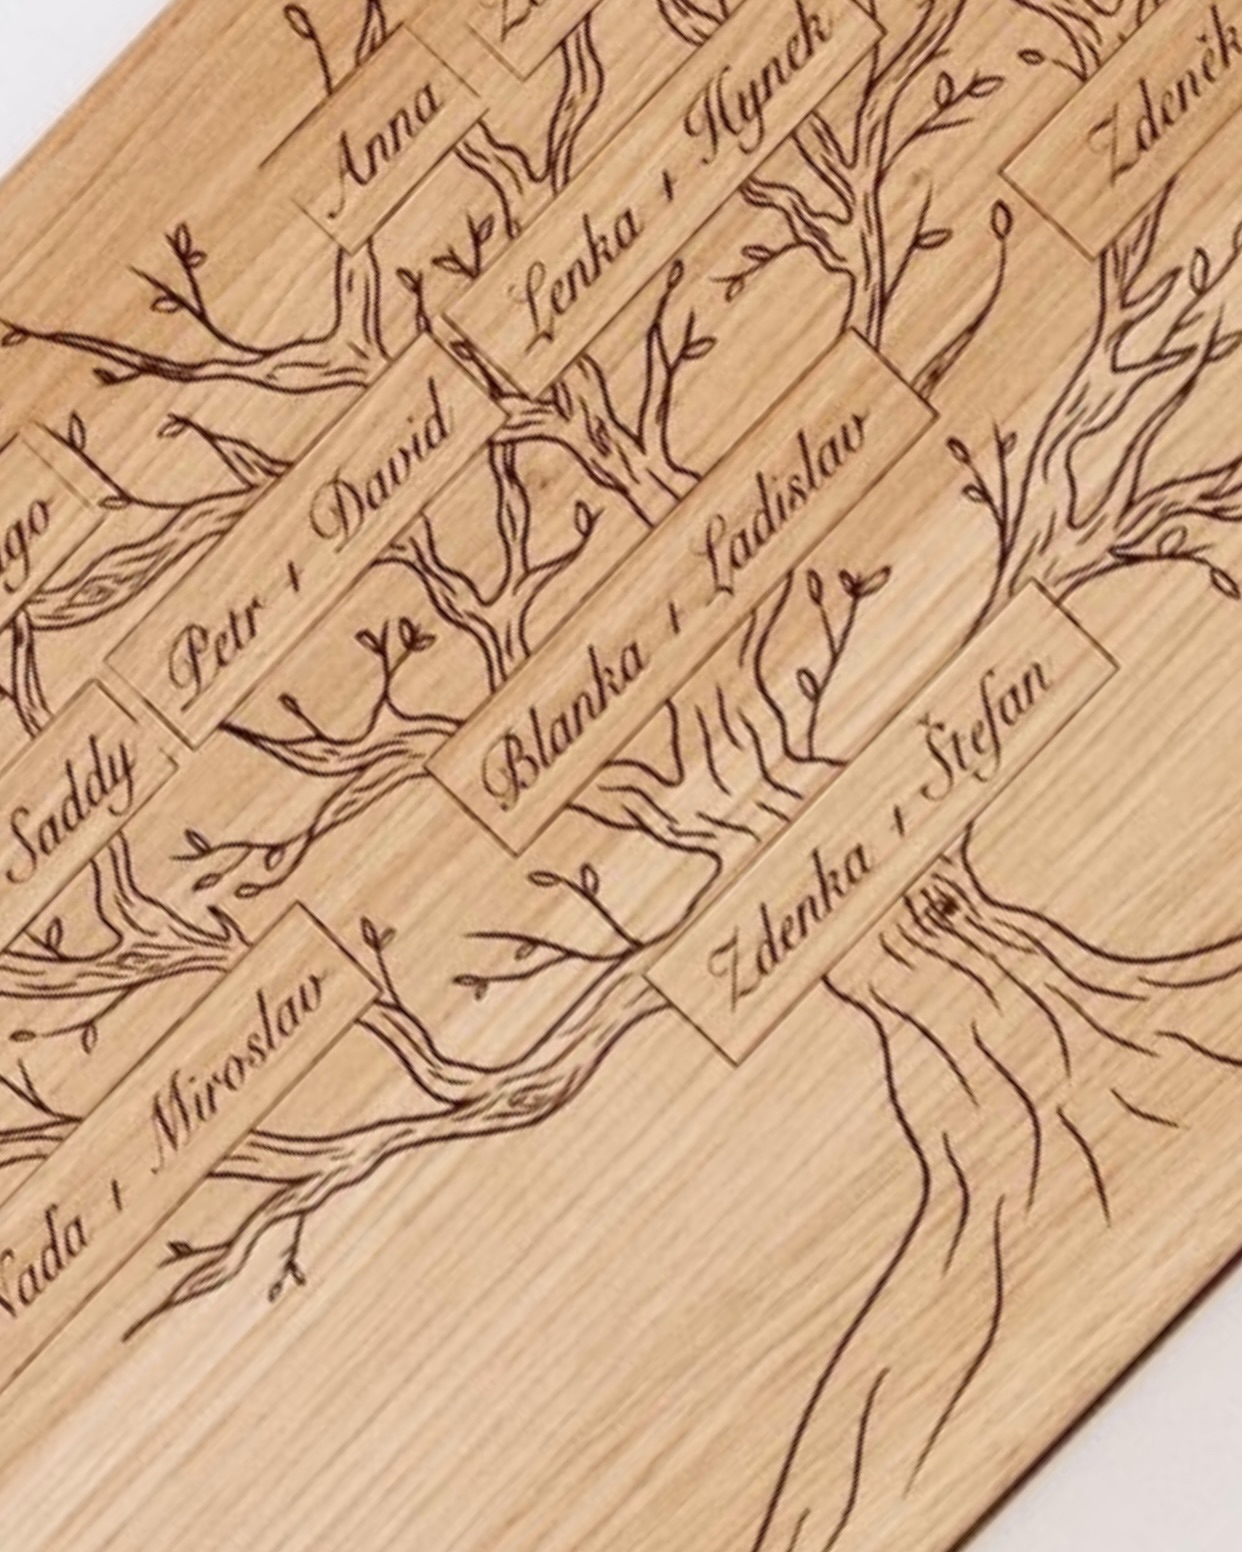 Anna
Lenka + Hynek
Zdeněk
Petr + David
Blanka + Ladislav
Saddy
Zdenka + Štefan
Miroslav